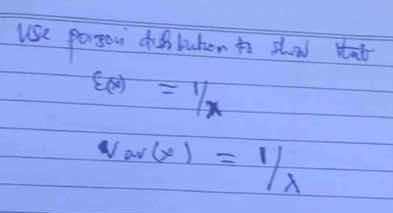 Use poisson distribution to show that
E(x) = 1/λ
Var(x) = 1/λ